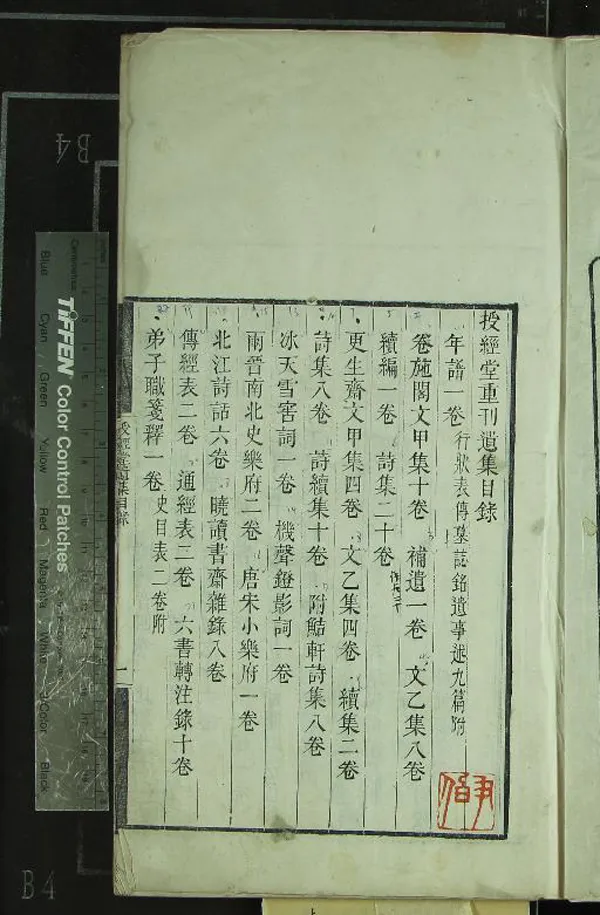 授經堂重刊遺集目錄
年譜一卷 行狀表傳墓誌銘遺事述九篇附
卷施閣文甲集十卷 補遺一卷 文乙集八卷
續編一卷 詩集二十卷
更生齋文甲集四卷 文乙集四卷 續集二卷
詩集八卷 詩續集十卷 附鮚軒詩集八卷
冰天雪窖詞一卷 機聲鐙影詞一卷
兩晉南北史樂府二卷 唐宋小樂府一卷
北江詩話六卷 曉讀書齋雜錄八卷
傳經表二卷 通經表二卷 六書轉注錄十卷
弟子職箋釋一卷 史目表二卷附
授經堂遺集目錄
一
TIFFEN Color Control Patches
Blue
Cyan
Green
Yellow
Red
Magenta
White
3/Color
Black
Centimetres
B4
B4